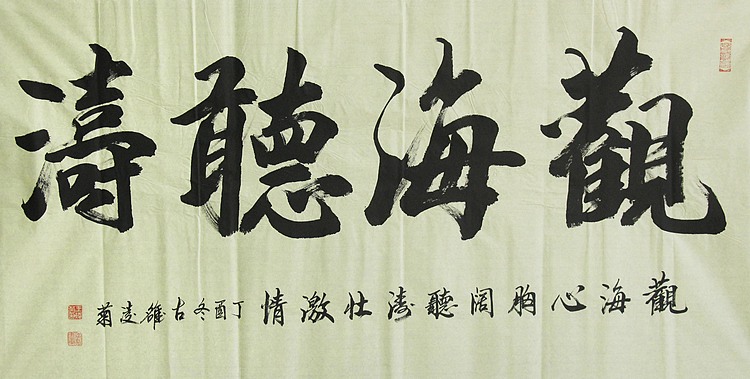 觀海聽濤
觀海心胸闊聽濤壯激情
丁酉冬古雒凌菊